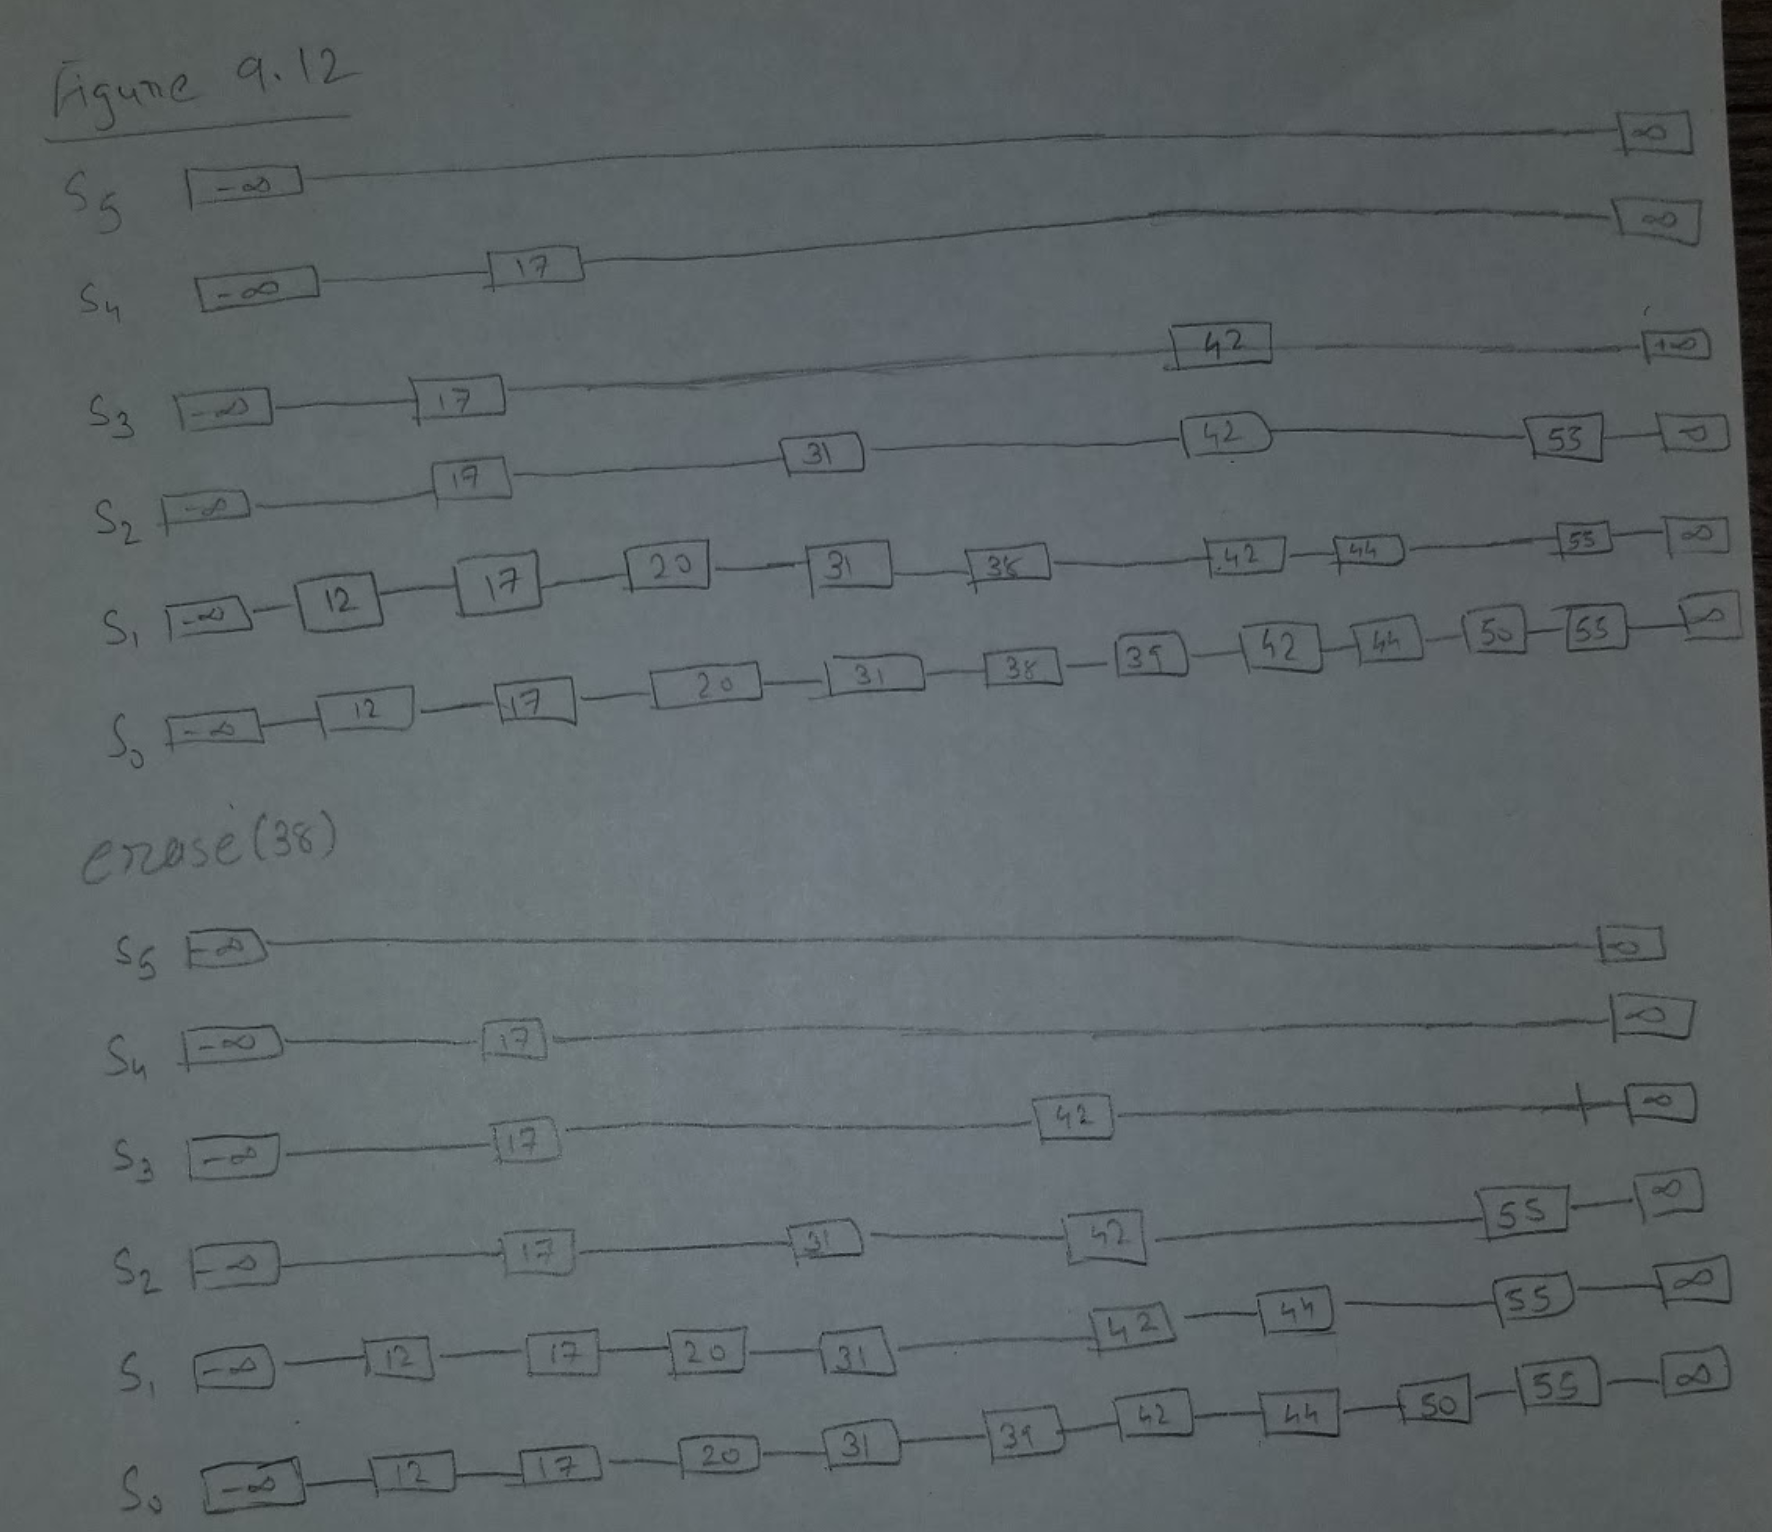 Figure 9.12
S5 -∞ ∞
S4 -∞ 17 ∞
S3 -∞ 17 42 +∞
S2 -∞ 17 31 42 53 ∞
S1 -∞ 12 17 20 31 38 42 44 55 ∞
S0 -∞ 12 17 20 31 38 39 42 44 50 55 ∞
erase(38)
S5 -∞ ∞
S4 -∞ 17 ∞
S3 -∞ 17 42 ∞
S2 -∞ 17 31 42 55 ∞
S1 -∞ 12 17 20 31 42 44 55 ∞
S0 -∞ 12 17 20 31 39 42 44 50 55 ∞